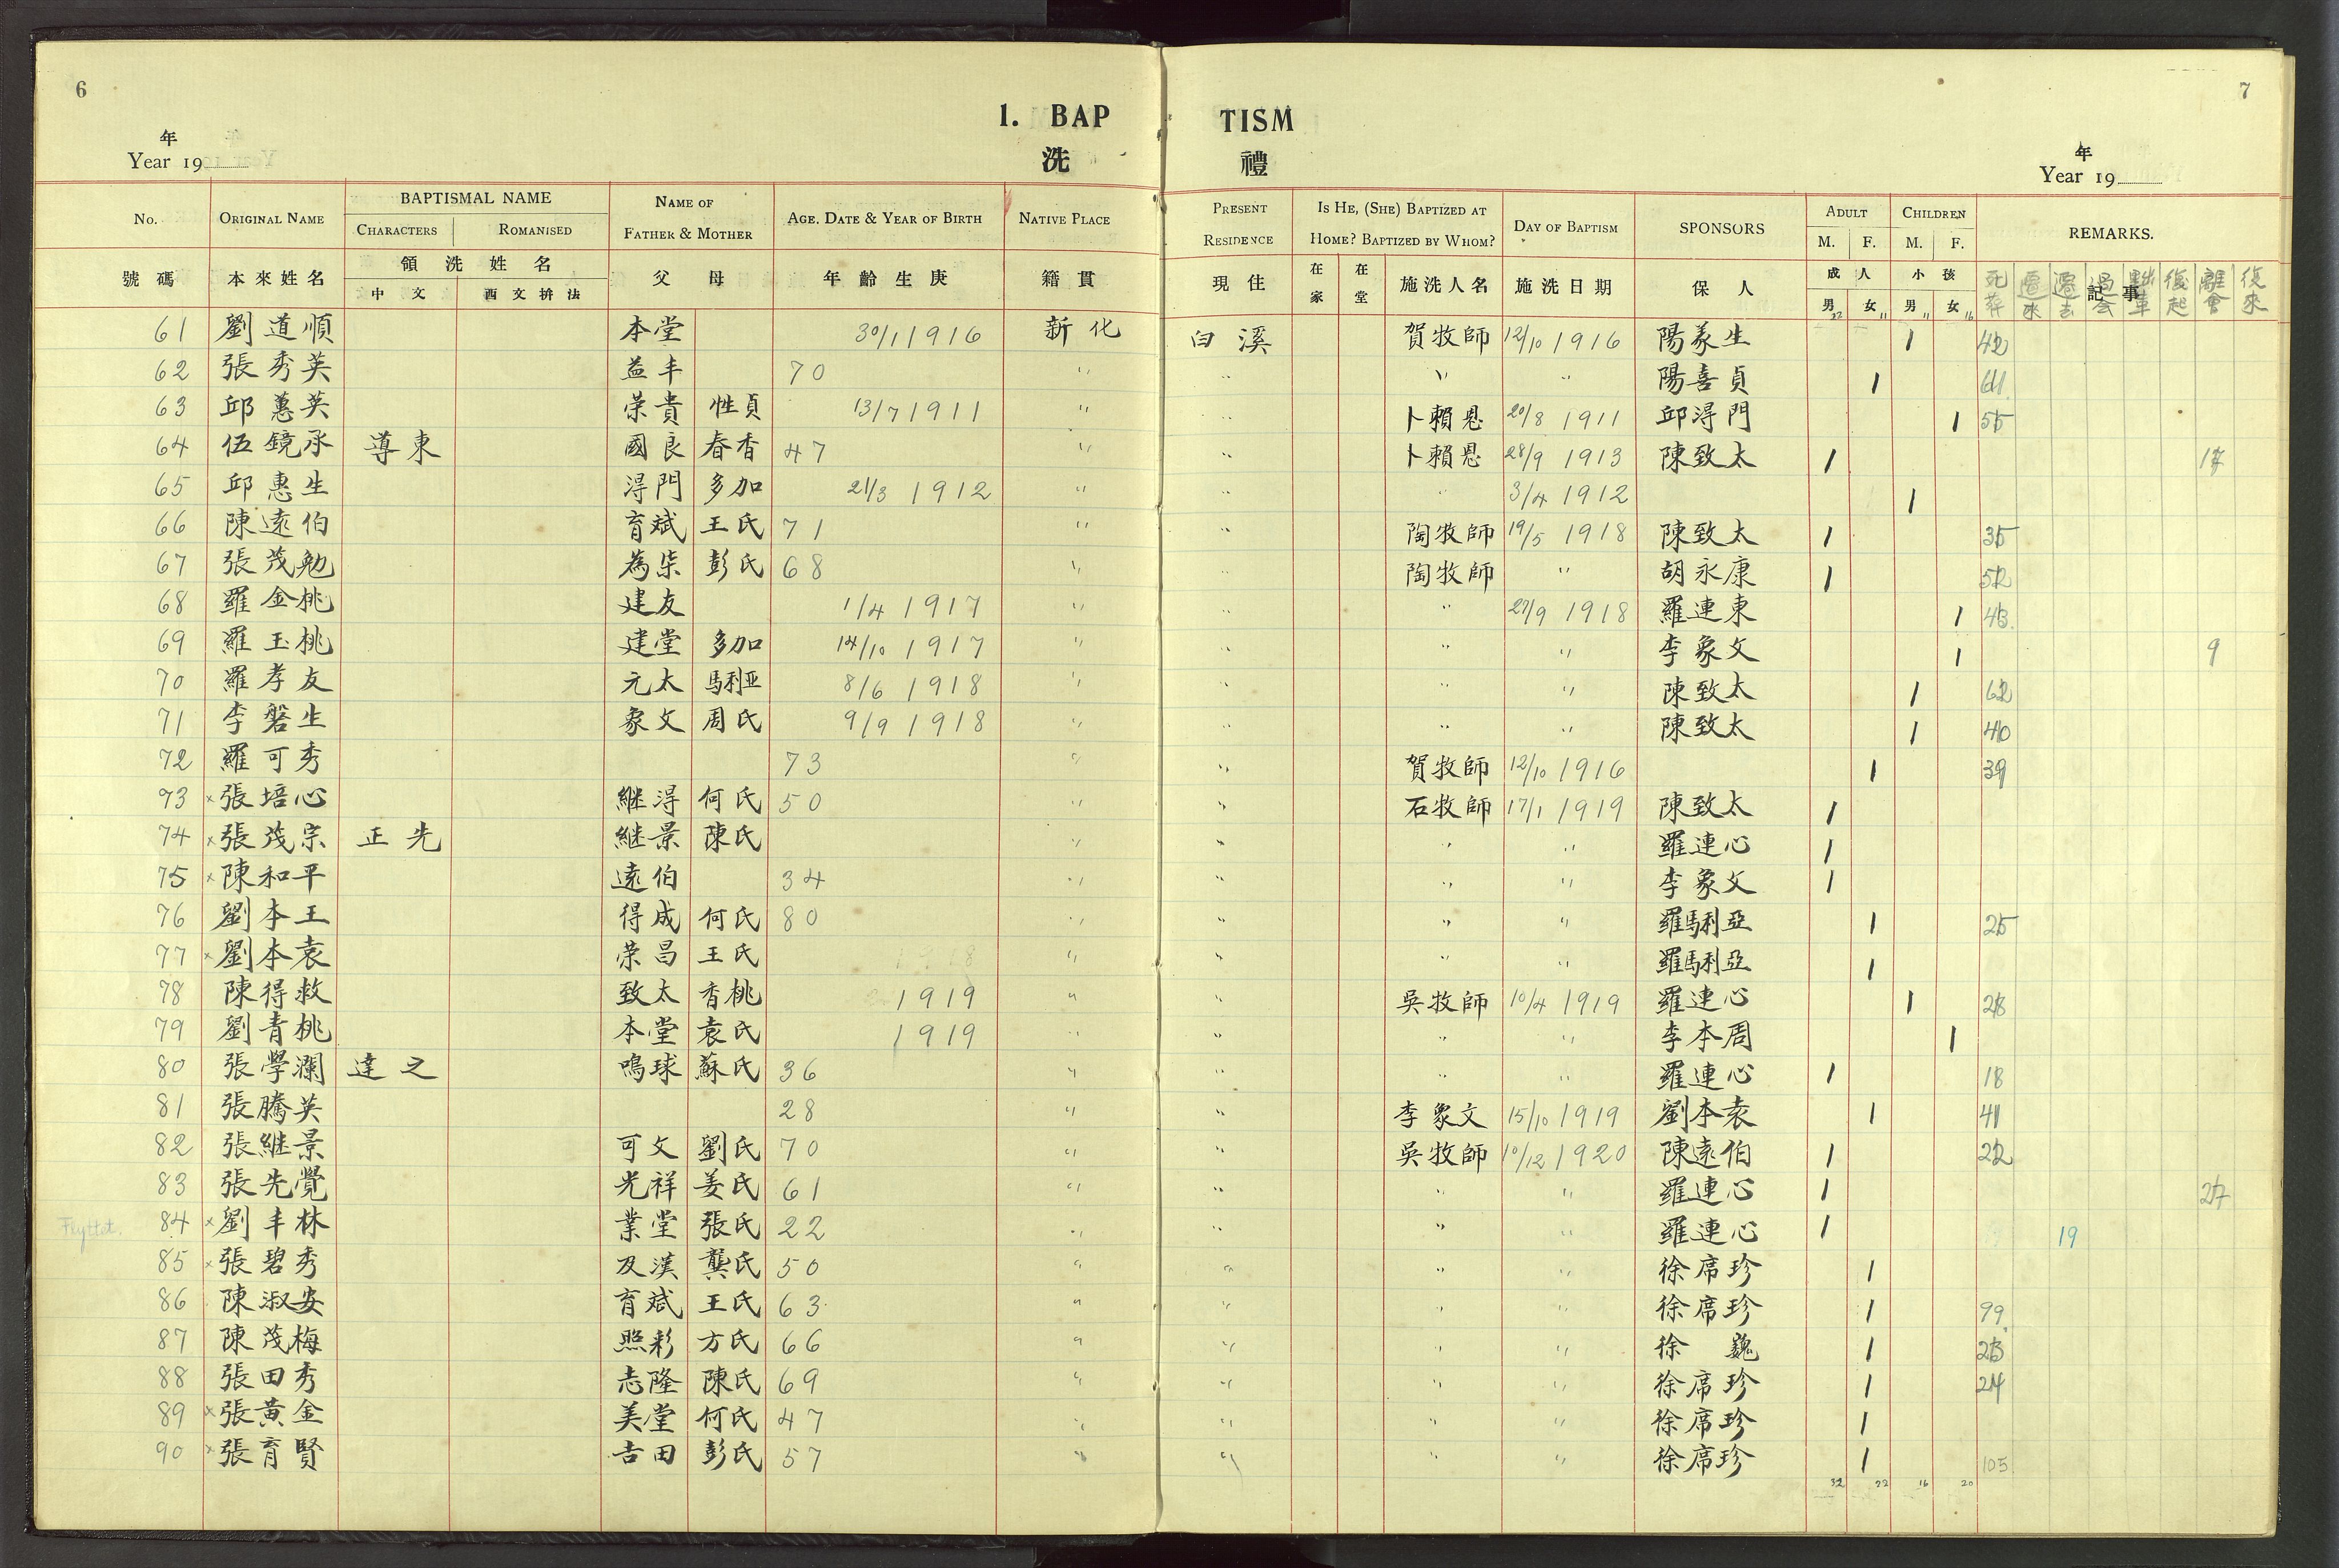 6
7
1. BAP TISM
洗 禮
年
Year 19
年
Year 19
No. ORIGINAL NAME BAPTISMAL NAME CHARACTERS ROMANISED NAME OF FATHER & MOTHER AGE. DATE & YEAR OF BIRTH NATIVE PLACE PRESENT RESIDENCE IS HE, (SHE) BAPTIZED AT HOME? BAPTIZED BY WHOM? DAY OF BAPTISM SPONSORS ADULT M. F. CHILDREN M. F. REMARKS.
號碼 本來姓名 領洗姓名 中文 西文拚法 父母 年齡生庚 籍貫 現住 在家 在堂 施洗人名 施洗日期 保人 成人 男 女 小孩 男 女 記事
死葬 遷來 遷去 過会 復起 離會 復來
22 11 11 16
61 劉道順 本堂 30/1 1916 新化 白溪 賀牧師 12/10 1916 陽彖生 1 42
62 張秀英 益丰 70 〃 〃 〃 〃 陽喜貞 1 61
63 邱蕙英 荣貴 性貞 13/7 1911 〃 〃 卜賴恩 20/8 1911 邱淂門 1 55
64 伍鏡承 導東 國良 春香 47 〃 〃 卜賴恩 28/9 1913 陳致太 1
65 邱惠生 淂門 多加 21/3 1912 〃 〃 〃 3/4 1912 1
66 陳遠伯 育斌 王氏 71 〃 〃 陶牧師 19/5 1918 陳致太 1 35
67 張茂勉 為柒 彭氏 68 〃 〃 陶牧師 〃 胡永康 1 52
68 羅金桃 建友 1/4 1917 〃 〃 〃 27/9 1918 羅連東 1 43
69 羅玉桃 建堂 多加 14/10 1917 〃 〃 〃 〃 李象文 1 9
70 羅孝友 元太 馬利亚 8/6 1918 〃 〃 〃 〃 陳致太 1 62
71 李磐生 象文 周氏 9/9 1918 〃 〃 〃 〃 陳致太 1 40
72 羅可秀 73 〃 〃 賀牧師 12/10 1916 1 39
73 × 張培心 継淂 何氏 50 〃 〃 石牧師 17/1 1919 陳致太 1
74 × 張茂宗 正光 継景 陳氏 〃 〃 〃 〃 羅連心 1
75 × 陳和平 遠伯 34 〃 〃 〃 〃 李象文 1
76 劉本王 得成 何氏 80 〃 〃 〃 〃 羅馬利亞 1 25
77 × 劉本袁 荣昌 王氏 〃 〃 〃 〃 羅馬利亞 1
78 陳得救 致太 香桃 1919 〃 〃 吳牧師 10/4 1919 羅連心 1 28
79 劉青桃 本堂 袁氏 1919 〃 〃 〃 〃 李本周 1
80 張學瀾 達之 鳴球 蘇氏 36 〃 〃 〃 〃 羅連心 1 18
81 張騰英 28 〃 〃 李象文 15/10 1919 劉本袁 1 41
82 張継景 可文 劉氏 70 〃 〃 吳牧師 10/12 1920 陳遠伯 1 22
83 張先覺 光祥 姜氏 61 〃 〃 〃 〃 羅連心 1 27
Flyttet. 84 × 劉丰林 業堂 張氏 22 〃 〃 〃 〃 羅連心 1 19
85 × 張碧秀 及漢 龔氏 50 〃 〃 〃 〃 徐席珍 1
86 陳淑安 育斌 王氏 63 〃 〃 〃 〃 徐席珍 1 99
87 陳茂梅 照彩 方氏 66 〃 〃 〃 〃 徐 巍 1 23
88 張田秀 志隆 陳氏 69 〃 〃 〃 〃 徐席珍 1 24
89 × 張黃金 美堂 何氏 47 〃 〃 〃 〃 徐席珍 1
90 × 張育賢 吉田 彭氏 57 〃 〃 〃 〃 徐席珍 1 105
32 22 16 20